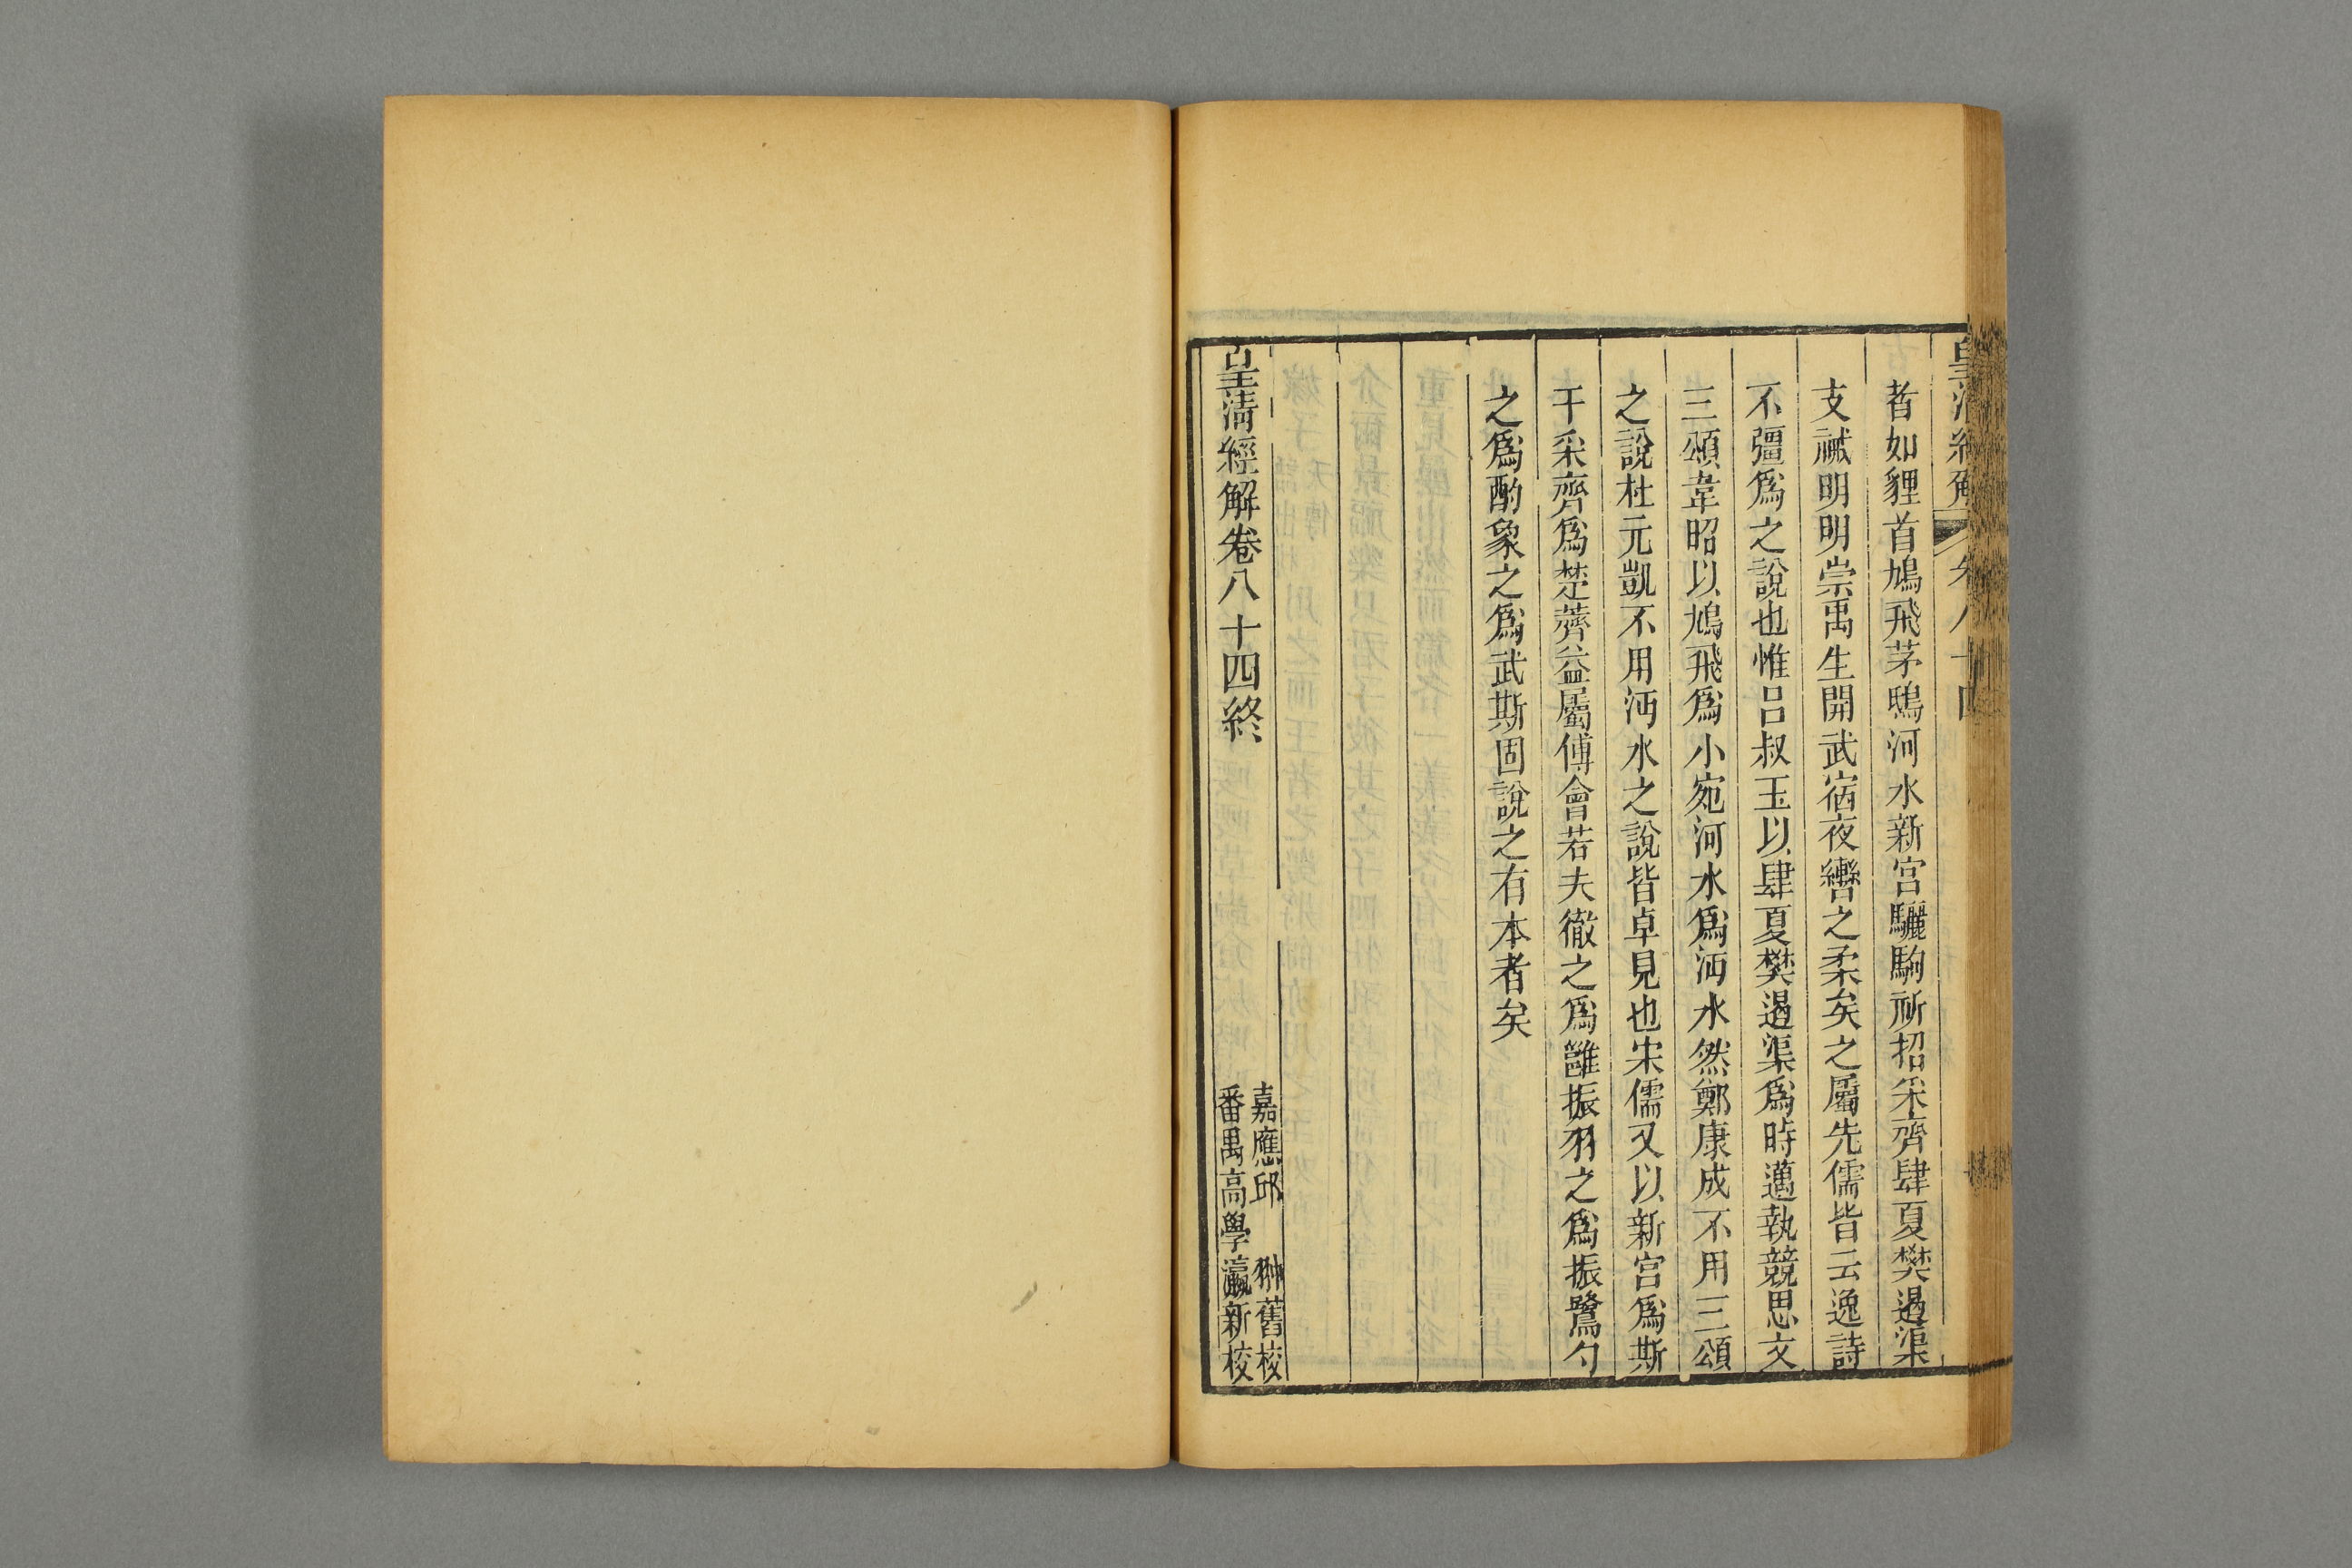 皇清經解 卷八十四
者如貍首鳩飛茅鴟河水新宮驪駒祈招采齊肆夏樊遏渠
支祴明明崇禹生開武宿夜轡之柔矣之屬先儒皆云逸詩
不彊爲之說也惟吕叔玉以肆夏樊遏渠爲時邁執競思文
三頌韋昭以鳩飛爲小宛河水爲沔水然鄭康成不用三頌
之說杜元凱不用沔水之說皆卓見也宋儒又以新宮爲斯
干采齊爲楚薺益屬傅會若夫徹之爲雝振羽之爲振鷺勺
之爲酌象之爲武斯固說之有本者矣
皇清經解卷八十四終
嘉應邱翀舊校
番禺高學瀛新校